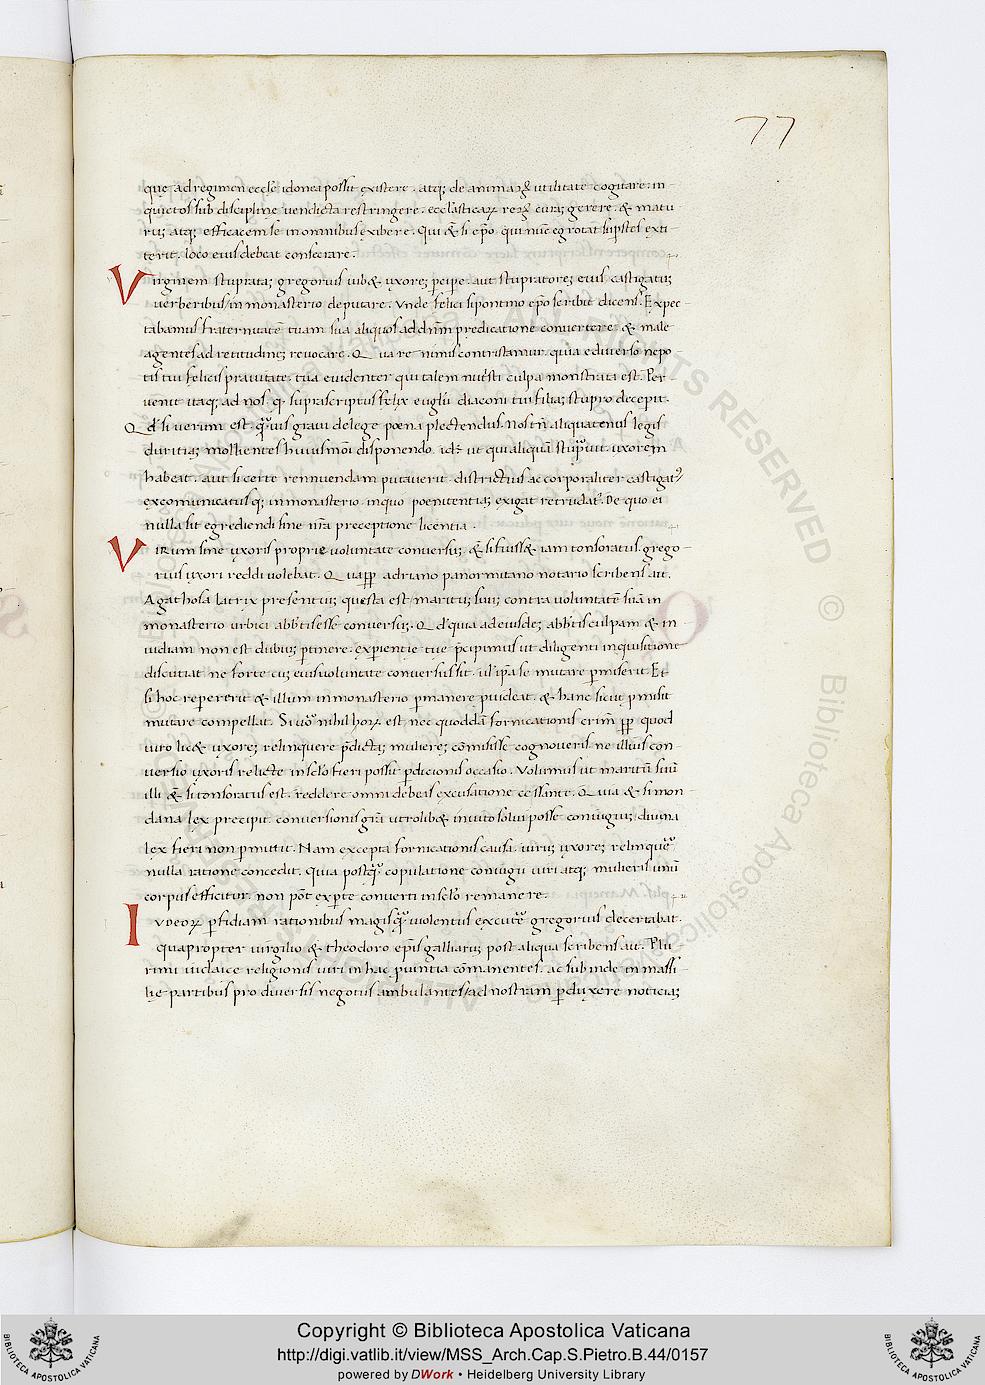 77
quę ad regimen eccłe idonea possit existere. atq; de animaꝝ utilitate cogitare. in
quietos sub disciplinę vendicta restringere. ecclasticaꝝ rerꝝ curã gerere. & matu
rũ; atq; efficacem se in omnibus exibere. Qui & si epo qui nũc egrotat sup̱stes exti
terit. loco eius debeat consecrare.
Virginem stuprata; gregorius iub& uxore; p̱cipe. aut stupratore; eius castigatũ;
uerberibus in monasterio deputare. Unde felici sipontino epo scribit dicens. Expec
tabamus fraternitate tuam sua aliquos ad dnm predicatione convertere. & male
agentes ad retitudine; revocare. Qua re nimis contristamur. quia e diuerso nepo
tis tui felicis pravitate. tua euidenter qui talem nutristi culpa monstrata est. Per
venit itaq; ad nos. q suprascriptus felix euglii diaconi tui filia; stupro decepit.
Qd si verum est. quis gravi de lege poena plectendus. Nos tñ aliquatenus legis
duritia; mollientes huiusmoi disponendo. ut qui aliquã stupuit uxorem
habeat. aut si certe rennuendam putauerit. districtius ac corporaliter castigatᷣ
excomunicatusq; in monasterio. in quo poenitentia; exigat retrudat᷒. De quo ei
nulla sit egrediendi sine nr̃a preceptione licentia.
Virum sine uxoris proprie voluntate conversũ; & si fuiss& iam tonsoratus. grego
rius uxori reddi volebat. Qua pp adriano panormitano notario scribens ait.
Agathosa latrix presentiũ; questa est maritũ; suũ; contra voluntatẽ suã in
monasterio urbici abbtis esse conversũ;. Qd quia ad eiusde; abbtis culpam & in
uidiam non est dubiũ; p̱tinere. experientie tue p̃cipimus ut diligenti inquisitione
discutiat ne forte cũ; eius voluntate conversus sit. ul ip̃a se mutare p̱miserit. Et
si hoc repererit & illum in monasterio p̱manere p̱uideat. & hanc sicut p̱misit
mutare compellat. Si uo nihil hoꝝ est. nec quoddã fornicationis crim pp quod
viro lic& uxore; relinquere p̃dictã; muliere; cõmisisse cognoveris. ne illius con
versio uxoris relicte in sclo fieri possit p̱dicionis occasio. Volumus ut maritũ suũ
illi & si tonsoratus est. reddere omni debeas excusatione cessante. Quia & si mon
dana lex precipit. conversionis grã utrolib& invito solui posse coniugiũ; divina
lex fieri non p̱mittit. Nam excepta fornicationis causa. virũ; uxore; relinquere
nulla ratione concedit. Quia postq̃ copulatione coniugii viri atq; mulieris unũ
corpus efficitur. non pot ex p̱te converti in sclo remanere.
Iudeoꝝ p̱fidiam rationibus magisq̃ violentus excutere gregorius decertabat.
quapropter virgilio & theodoro epis galliarũ; post aliqua scribens ait. Plu
rimi iudaice religionis viri in hac puintia cõmanentes. ac subinde in massi
lię partibus pro diversis negotiis ambulantes ad nostram p̱duxere noticiã;
Copyright © Biblioteca Apostolica Vaticana
http://digi.vatlib.it/view/MSS_Arch.Cap.S.Pietro.B.44/0157
powered by DWork • Heidelberg University Library